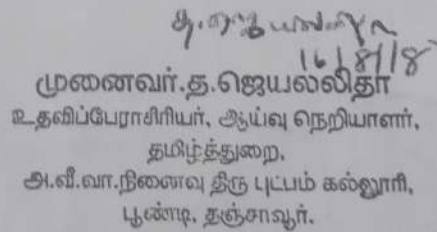 த.ஜெயலலிதா
16/8/18
முனைவர்.த.ஜெயலலிதா
உதவிப்பேராசிரியர், ஆய்வு நெறியாளர்,
தமிழ்த்துறை,
அ.வீ.வா.நினைவு திரு புட்பம் கல்லூரி,
பூண்டி, தஞ்சாவூர்.